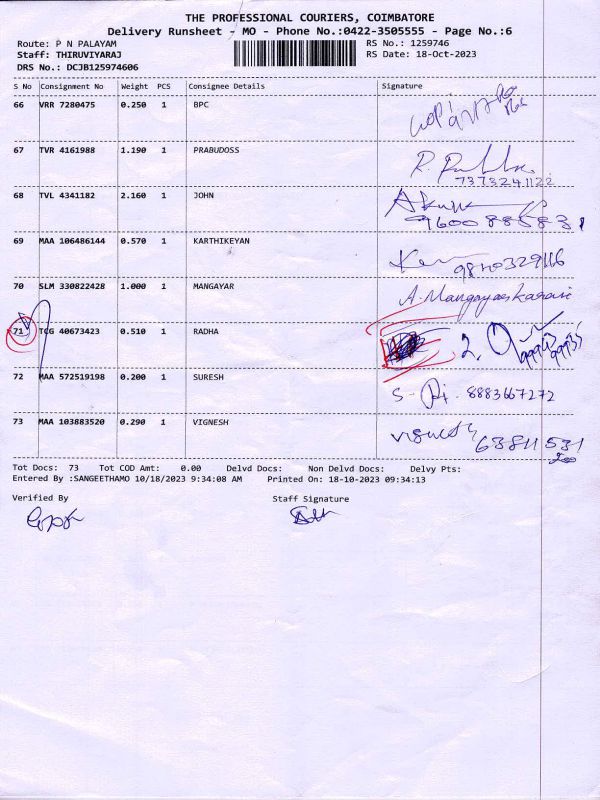 THE PROFESSIONAL COURIERS, COIMBATORE
Delivery Runsheet - MO - Phone No.:0422-3505555 - Page No.:6
Route: P N PALAYAM RS No.: 1259746
Staff: THIRUVIYARAJ RS Date: 18-Oct-2023
DRS No.: DCJB125974606
S No Consignment No Weight PCS Consignee Details Signature
66 VRR 7280475 0.250 1 BPC
67 TVR 4161988 1.190 1 PRABUDOSS
7373241122
68 TVL 4341182 2.160 1 JOHN
69 MAA 106486144 0.570 1 KARTHIKEYAN
70 SLM 330822428 1.000 1 MANGAYAR A. Mangayarkarasi
71 TCG 40673423 0.510 1 RADHA
72 MAA 572519198 0.200 1 SURESH 8883667272
73 MAA 103883520 0.290 1 VIGNESH Vignesh
Tot Docs: 73 Tot COD Amt: 0.00 Delvd Docs: Non Delvd Docs: Delvy Pts:
Entered By :SANGEETHAMO 10/18/2023 9:34:08 AM Printed On: 18-10-2023 09:34:13
Verified By Staff Signature